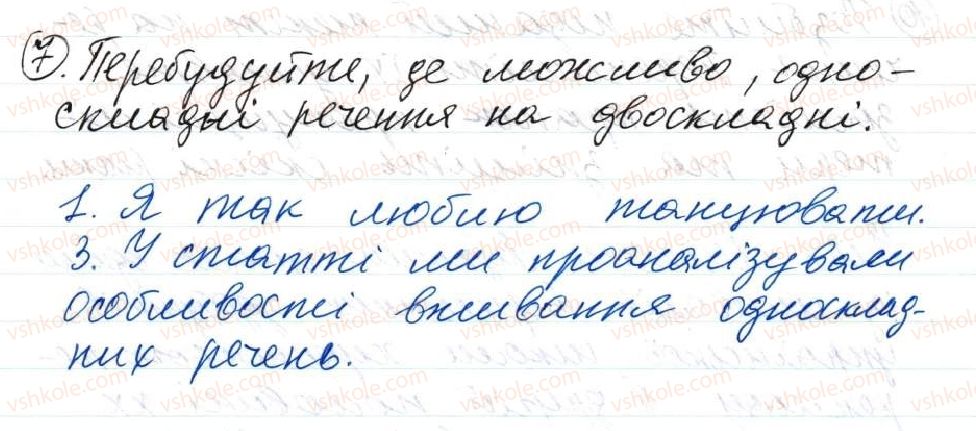 7. Перебудуйте, де можливо, одно-
складні речення на двоскладні.
1. Я так люблю танцювати.
3. У статті ми проаналізували
особливості вживання односклад-
них речень.